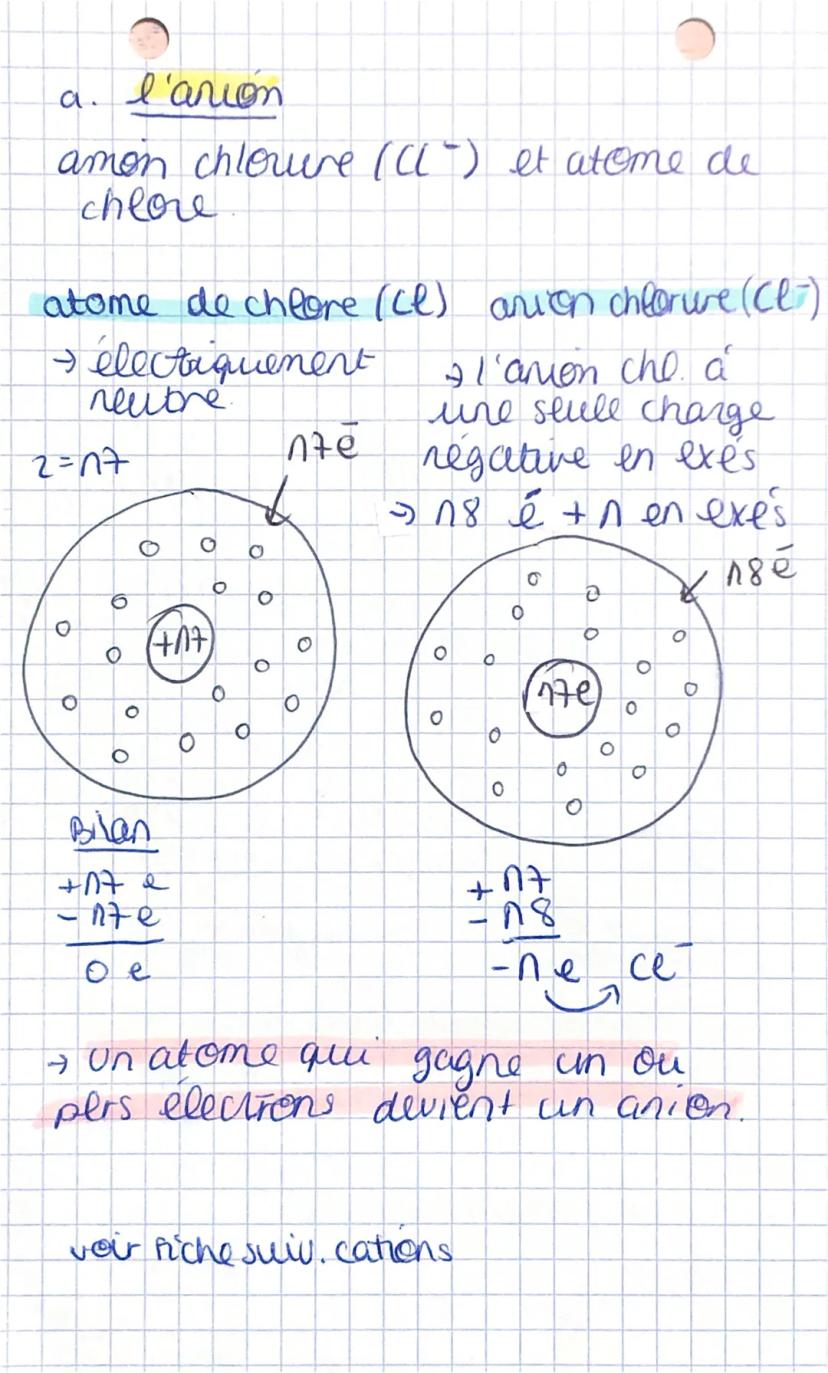 a. l'anion
anion chlorure (Cl⁻) et atome de
chlore
atome de chlore (Cl)
→ électriquement
neutre
z = 17
17 é
+17
Bilan
+17 e
- 17 e
0 e
anion chlorure (Cl⁻)
→ l'anion chl. a
une seule charge
négative en exés
→ 18 é + 1 en exés
18 é
17e
+ 17
- 18
-1 e Cl⁻
→ un atome qui gagne un ou
plrs électrons devient un anion.
voir fiche suiv. cations